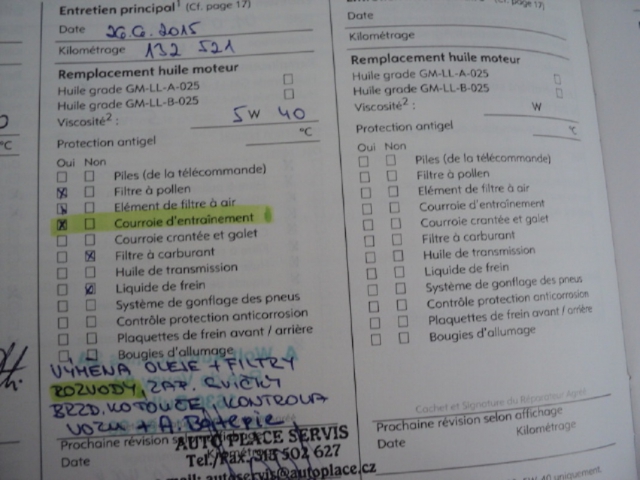 Entretien principal¹ (Cf. page 17)
Date 26.6.2015
Kilométrage 132 521
Remplacement huile moteur
Huile grade GM-LL-A-025
Huile grade GM-LL-B-025
Viscosité² : 5W 40
Protection antigel °C
Oui Non
Piles (de la télécommande)
Filtre à pollen
Elément de filtre à air
Courroie d'entraînement
Courroie crantée et galet
Filtre à carburant
Huile de transmission
Liquide de frein
Système de gonflage des pneus
Contrôle protection anticorrosion
Plaquettes de frein avant / arrière
Bougies d'allumage
VÝMĚNA OLEJE + FILTRY
ROZVODY, ZAP. SVÍČKY
BRZD. KOTOUČE, KONTROLA
VOZU + A Baterie
Prochaine révision
Date
AUTO PLACE SERVIS
Tel./Fax: 315 502 627
mail: autoservis@autoplace.cz
page 17)
Date
Kilométrage
Remplacement huile moteur
Huile grade GM-LL-A-025
Huile grade GM-LL-B-025
Viscosité² : W
Protection antigel °C
Oui Non
Piles (de la télécommande)
Filtre à pollen
Elément de filtre à air
Courroie d'entraînement
Courroie crantée et galet
Filtre à carburant
Huile de transmission
Liquide de frein
Système de gonflage des pneus
Contrôle protection anticorrosion
Plaquettes de frein avant / arrière
Bougies d'allumage
Cachet et Signature du Réparateur Agréé
Prochaine révision selon affichage
Date Kilométrage
40 uniquement.